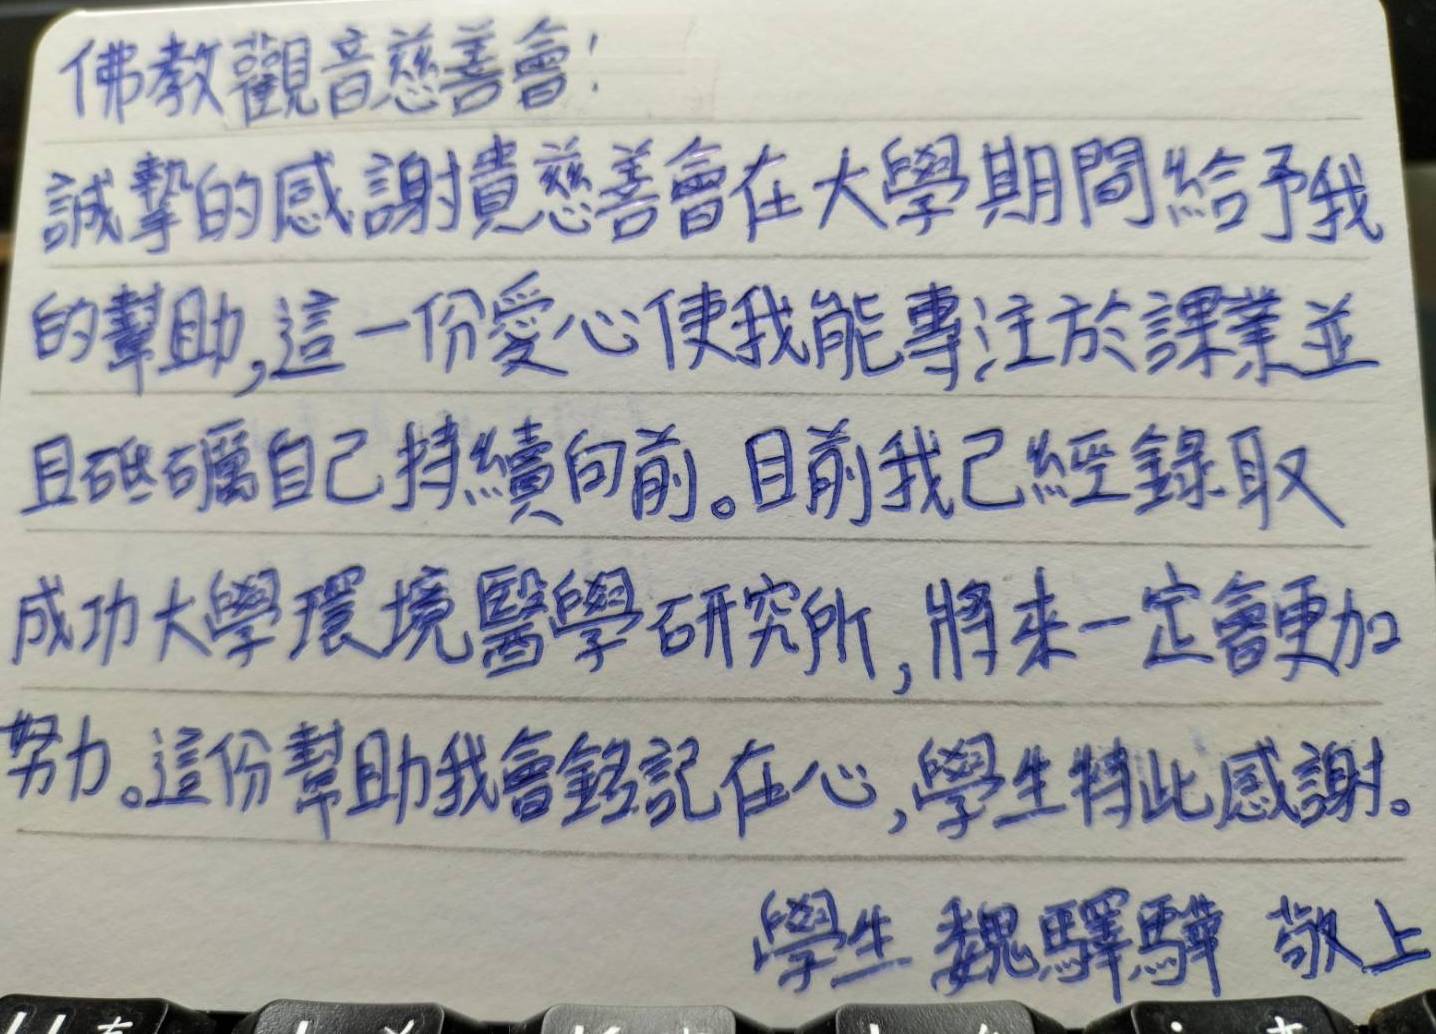 佛教觀音慈善會！
誠摯的感謝貴慈善會在大學期間給予我
的幫助,這一份愛心使我能專注於課業並
且砥礪自己持續向前。目前我已經錄取
成功大學環境醫學研究所,將來一定會更加
努力。這份幫助我會銘記在心,學生特此感謝。
學生 魏驛驊 敬上